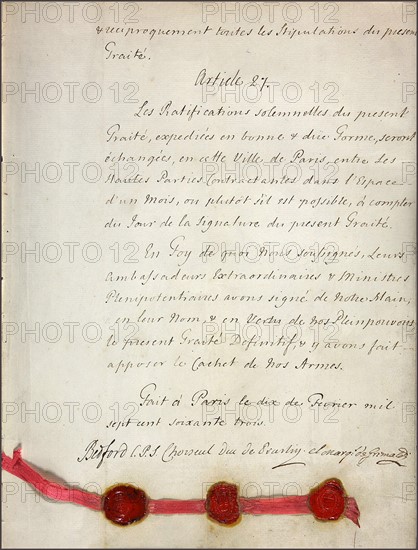 & réciproquement toutes les Stipulations du présent
Traité.
Article 27.
Les Ratifications solemnelles du présent
Traité, expediées en bonne & due Forme, seront
échangées, en cette Ville de Paris, entre Les
Hautes Parties Contractantes dans l'Espace
d'un Mois, ou plutôt s'il est possible, à compter
du Jour de la Signature du présent Traité.
En Foy de quoi Nous soussignés, Leurs
Ambassadeurs Extraordinaires & Ministres
Plenipotentiaires avons signé de Notre Main,
en leur Nom, & en Vertu de nos Pleinpouvoirs
le présent Traité Définitif, & y avons fait
apposer le Cachet de nos Armes.
Fait à Paris le dix de Fevrier mil
sept cent soixante trois.
Bedford C.P.S Choiseul duc de Praslin. el Marq.s de Grimaldi
PHOTO12